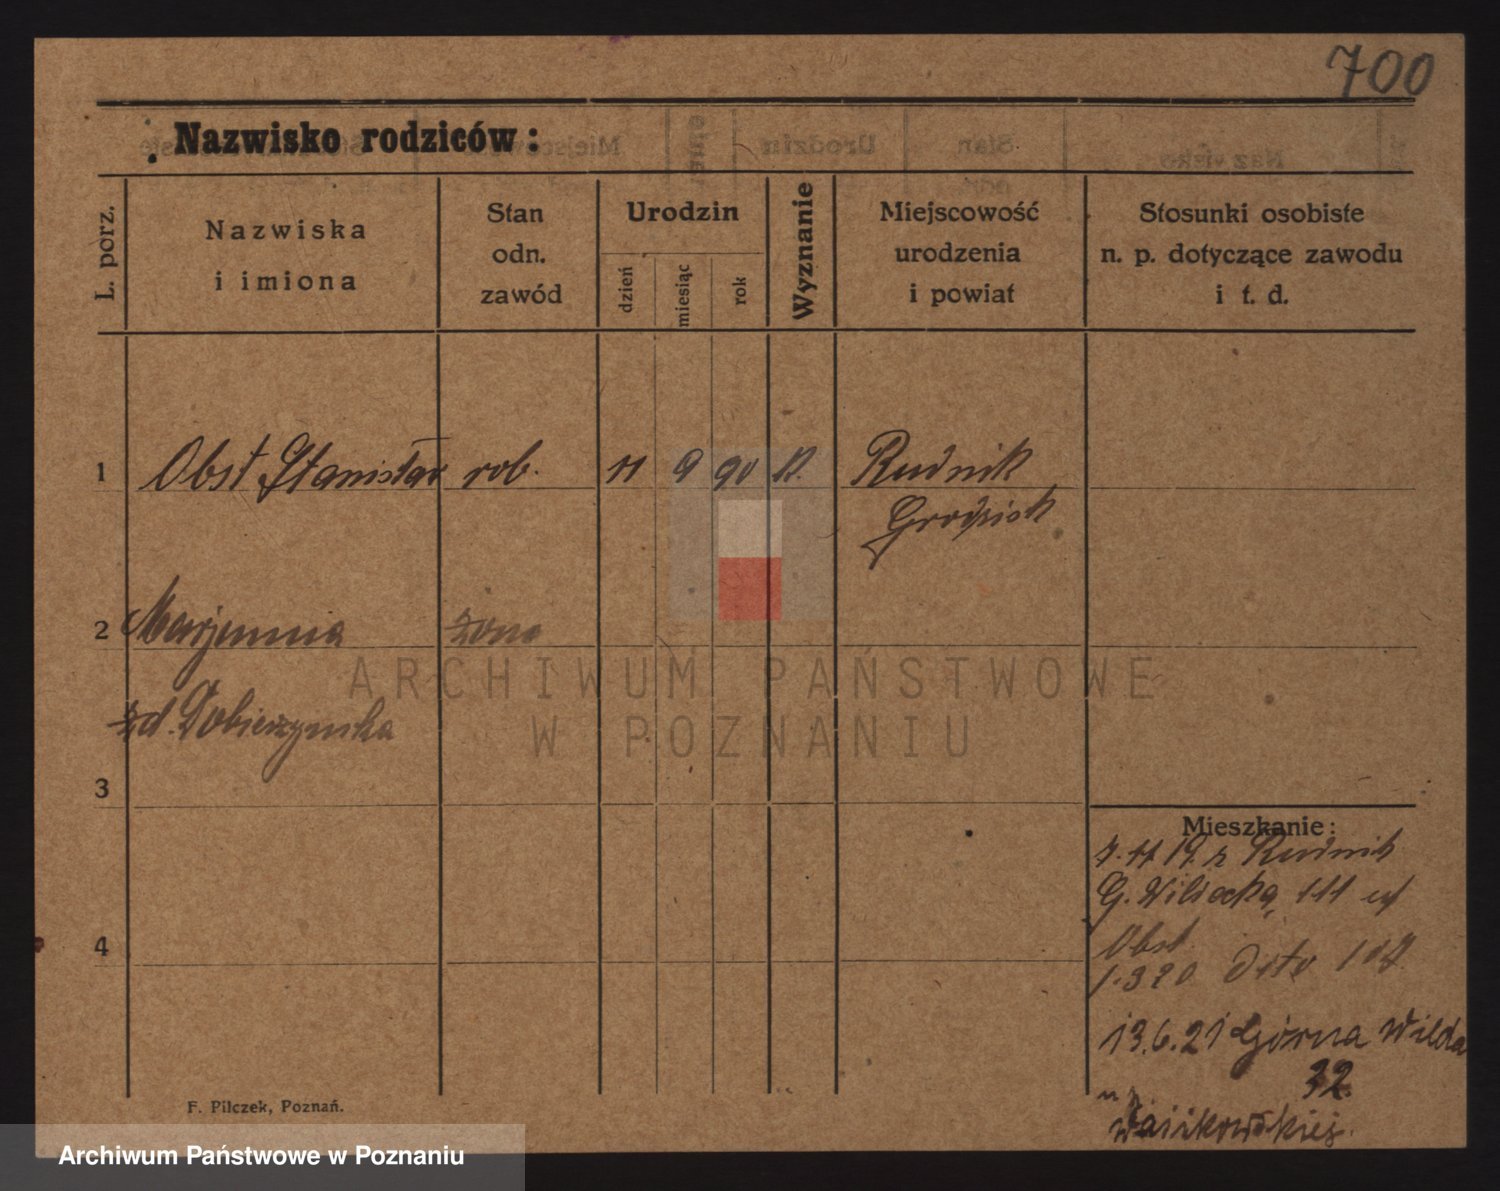 700
Nazwisko rodziców:
L. porz.
Nazwiska
i imiona
Stan
odn.
zawód
Urodzin
dzień
miesiąc
rok
Wyznanie
Miejscowość
urodzenia
i powiat
Stosunki osobiste
n. p. dotyczące zawodu
i t. d.
1 Obst Stanisław rob. 11 9 90 k. Rudnik
Grodzisk
2 Marjanna żona
zd. Dobierzyńska
3
4
Mieszkanie:
7. 11 19. z Rudnik
G. Wilsecka 111
Obst
1.3 20 dito
13.6.21 Górna Wilda
32
u p.
ARCHIWUM PAŃSTWOWE
W POZNANIU
F. Pilczek, Poznań.
Archiwum Państwowe w Poznaniu